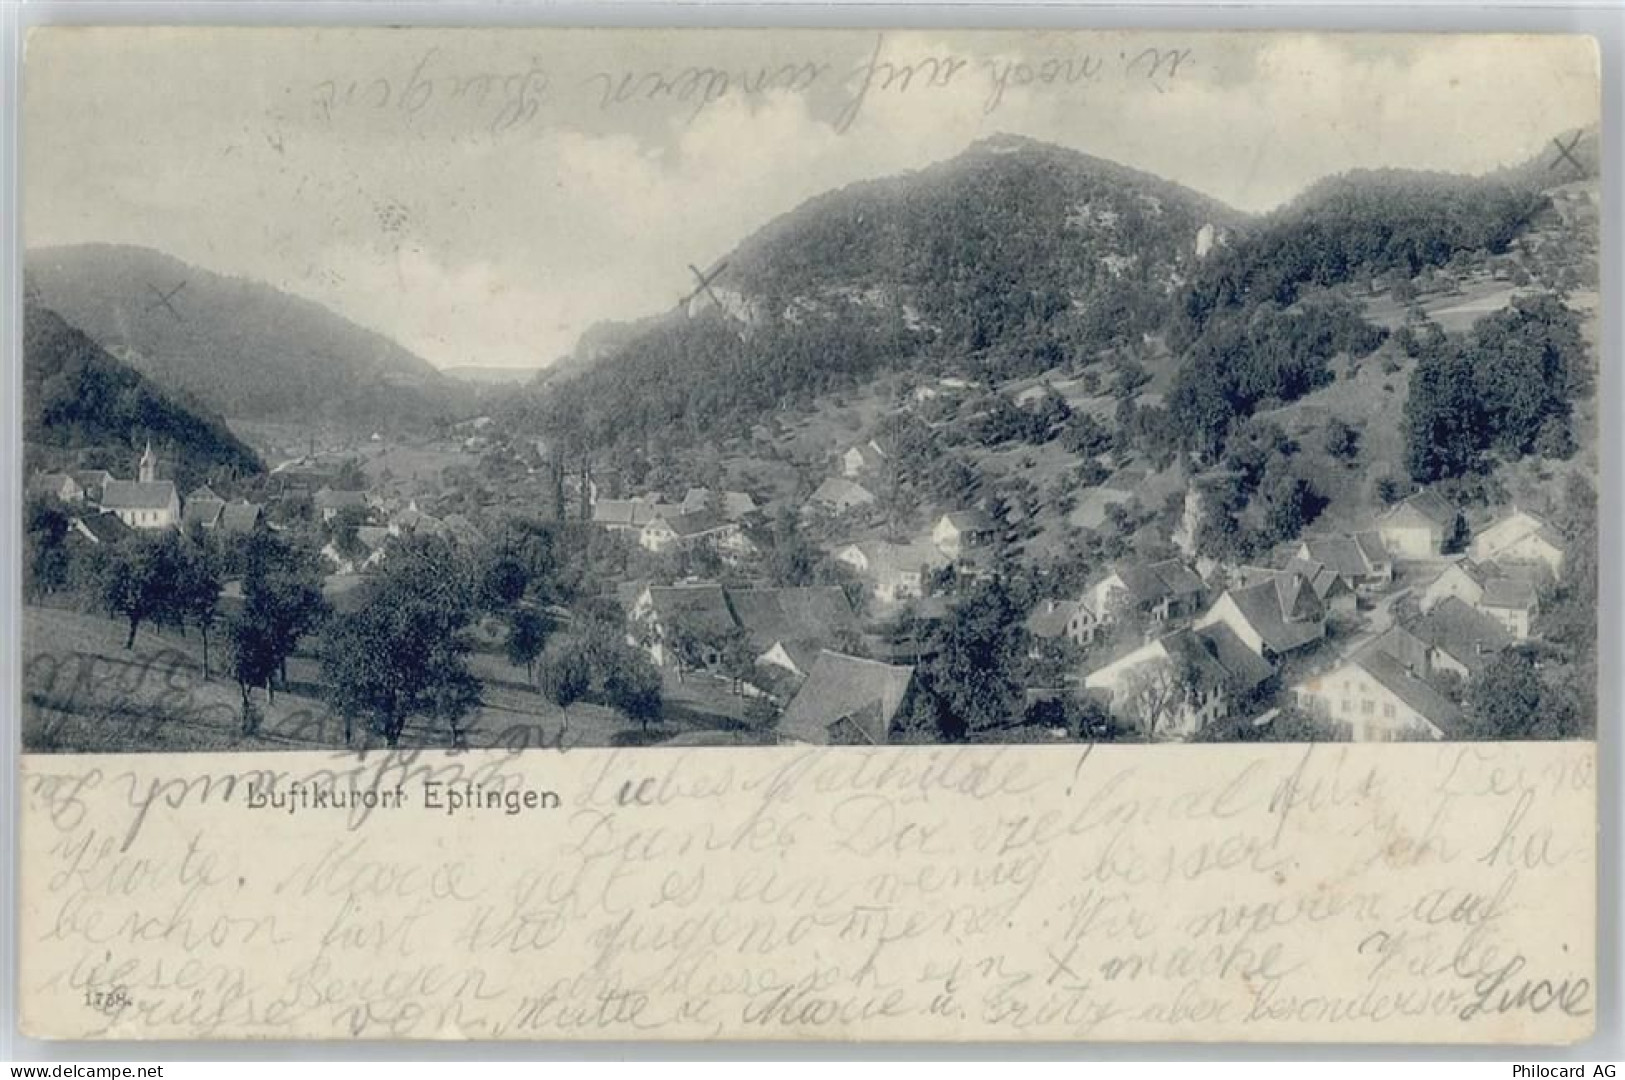 u. noch auf andern Bergen
Luftkurort Eptingen
Liebes Mathilde!
Danke Dir vielmal für Deine
Karte. Marie geht es ein wenig besser. Ich ha-
be schon fast 4 zugenommen. Wir waren auf
diesen Bergen wo ich ein x mache. Viele
Grüsse von Mutter, Marie u. Fritz aber besonders v. Lucie
1738.
Philocard AG